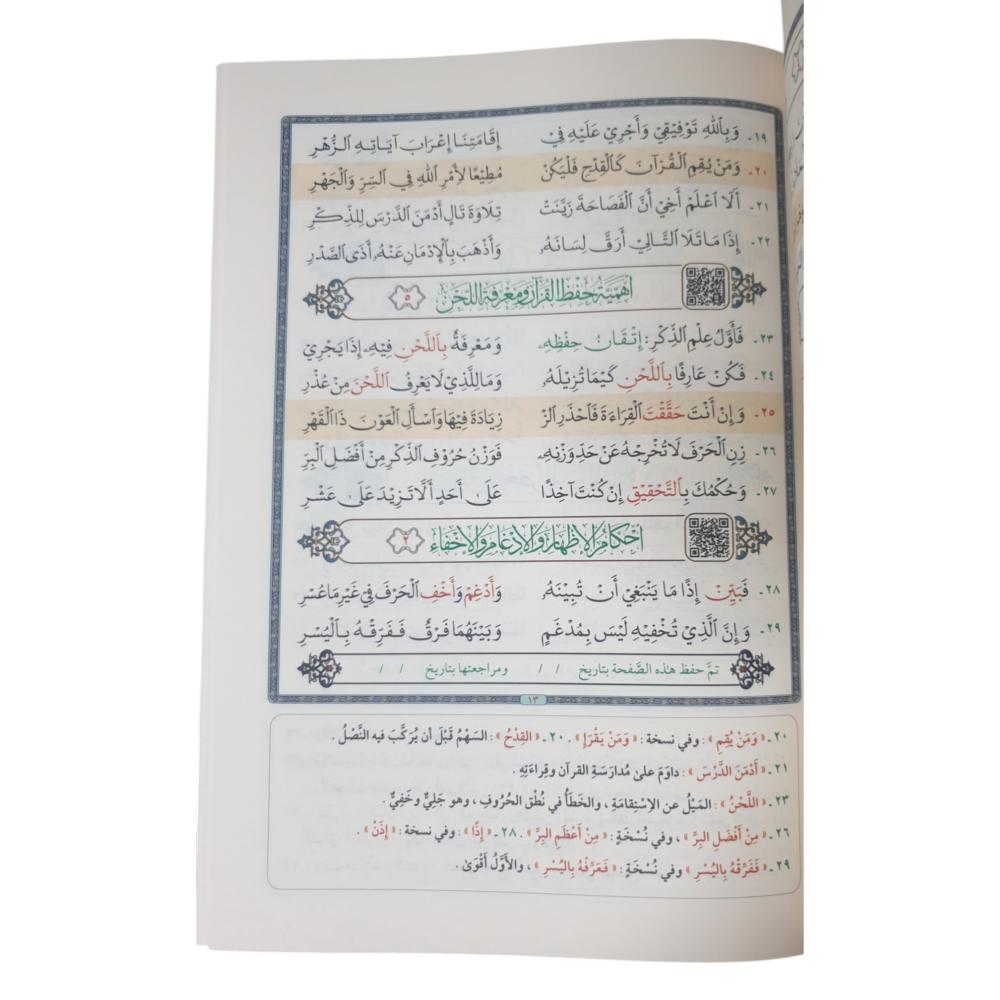 ١٩ـ وَبِاللهِ تَوْفِيْقِيْ وَأَجْرِيْ عَلَيْهِ فِيْ إِقَامَتِنَا إِعْرَابَ آيَاتِهِ الزُّهْرِ
٢٠ـ وَمَنْ يُقِمِ الْقُرْآنَ كَالْقِدْحِ فَلْيَكُنْ مُطِيْعًا لِأَمْرِ اللهِ فِي السِّرِّ وَالْجَهْرِ
٢١ـ أَلَا اعْلَمْ أَخِيْ أَنَّ الْفَصَاحَةَ زَيَّنَتْ تِلَاوَةَ تَالٍ أَدْمَنَ الدَّرْسَ لِلذِّكْرِ
٢٢ـ إِذَا مَا تَلَا التَّالِيْ أَرَقَّ لِسَانَهُ وَأَذْهَبَ بِالْإِدْمَانِ عَنْهُ أَذَى الصَّدْرِ
أَهَمِّيَّةُ حِفْظِ الْقُرْآنِ وَمَعْرِفَةِ اللَّحْنِ ٥
٢٣ـ فَأَوَّلُ عِلْمِ الذِّكْرِ: إِتْقَانُ حِفْظِهِ وَمَعْرِفَةٌ بِاللَّحْنِ فِيْهِ إِذَا يَجْرِيْ
٢٤ـ فَكُنْ عَارِفًا بِاللَّحْنِ كَيْمَا تُزِيْلَهُ وَمَا لِلَّذِيْ لَا يَعْرِفُ اللَّحْنَ مِنْ عُذْرِ
٢٥ـ وَإِنْ أَنْتَ حَقَّقْتَ الْقِرَاءَةَ فَاحْذَرِ الزْ زِيَادَةَ فِيْهَا وَاسْأَلِ الْعَوْنَ ذَا الْقَهْرِ
٢٦ـ زِنِ الْحَرْفَ لَا تُخْرِجْهُ عَنْ حَدِّ وَزْنِهِ فَوَزْنُ حُرُوْفِ الذِّكْرِ مِنْ أَفْضَلِ الْبِرِّ
٢٧ـ وَحُكْمُكَ بِالتَّحْقِيْقِ إِنْ كُنْتَ آخِذًا عَلَى أَحَدٍ أَلَّا تَزِيْدَ عَلَى عَشْرِ
أَحْكَامُ الْإِظْهَارِ وَالْإِدْغَامِ وَالْإِخْفَاءِ ٢
٢٨ـ فَبَيِّنْ إِذًا مَا يَنْبَغِيْ أَنْ تُبِيْنَهُ وَأَدْغِمْ وَأَخْفِ الْحَرْفَ فِيْ غَيْرِ مَا عُسْرِ
٢٩ـ وَإِنَّ الَّذِيْ تُخْفِيْهِ لَيْسَ بِمُدْغَمٍ وَبَيْنَهُمَا فَرْقٌ فَفَرِّقْهُ بِالْيُسْرِ
تمَّ حفظ هذه الصَّفحة بتاريخ / / ومراجعتها بتاريخ / /
١٣
٢٠ـ «وَمَنْ يُقِمِ»: وفي نسخة: «وَمَنْ يَقْرَإِ». ٢٠ـ «القِدْحُ»: السَهْمُ قَبْلَ أن يُرَكَّبَ فيه النَّصْلُ.
٢١ـ «أَدْمَنَ الدَّرْسَ»: داوَمَ على مُدارَسَةِ القرآن وقِراءَتِهِ.
٢٣ـ «اللَّحْنُ»: المَيْلُ عن الاِسْتِقامَةِ، والخَطَأُ في نُطْقِ الحُرُوفِ، وهو جَلِيٌّ وخَفِيٌّ.
٢٦ـ «مِنْ أَفْضَلِ البِرِّ»، وفي نُسْخَةٍ: «مِنْ أَعْظَمِ البِرِّ». ٢٨ـ «إِذًا»: وفي نسخة: «إِذَنْ».
٢٩ـ «فَفَرِّقْهُ بِاليُسْرِ» وفي نُسْخَةٍ: «فَعَرِّفْهُ بِاليُسْرِ»، والأَوَّلُ أَقْوَى.